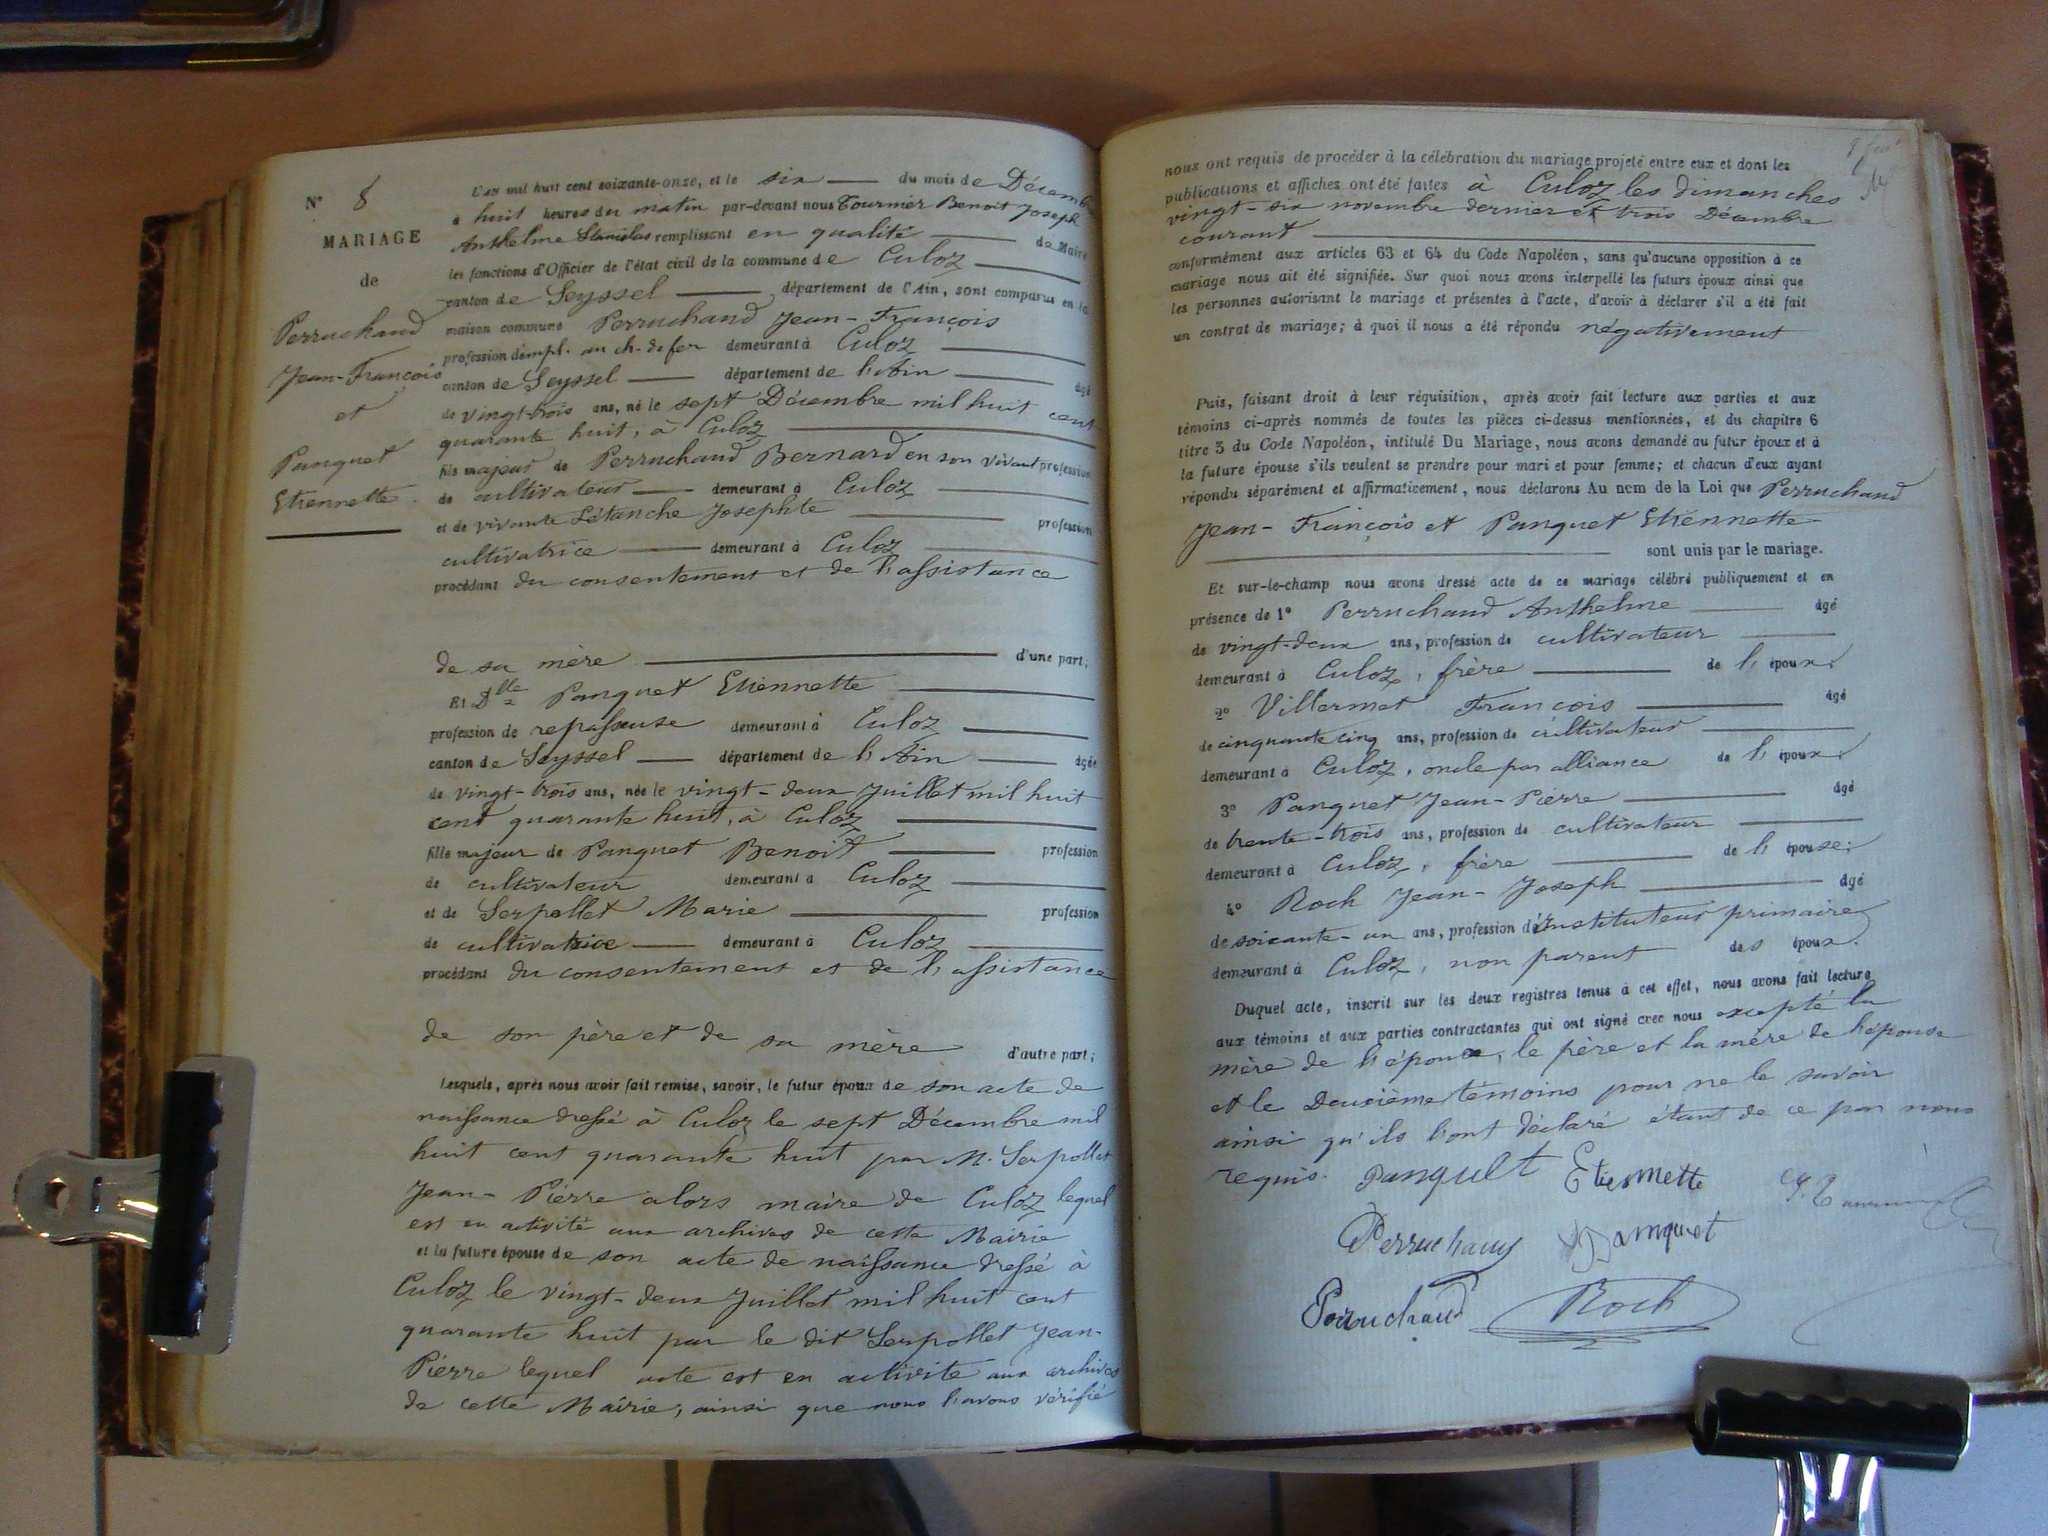 N° 8
MARIAGE
de
Perruchaud
Jean-François
et
Panquet
Etiennette
L'an mil huit cent soixante-onze, et le six du mois de Décembre
à huit heures du matin par-devant nous Tournier Benoit Joseph
Anthelme Stanislas remplissant en qualité de Maire
les fonctions d'Officier de l'état civil de la commune de Culoz
canton de Seyssel département de l'Ain, sont comparus en la
maison commune Perruchaud Jean-François
profession d'empl. au ch. de fer demeurant à Culoz
canton de Seyssel département de l'Ain âgé
de vingt-trois ans, né le sept Décembre mil huit cent
quarante huit, à Culoz
fils majeur de Perruchaud Bernard en son vivant profession
de cultivateur demeurant à Culoz
et de vivante Létanche Josephte profession
cultivatrice demeurant à Culoz
procédant du consentement et de l'assistance
de sa mère d'une part;
Et Dlle Panquet Etiennette
profession de repasseuse demeurant à Culoz
canton de Seyssel département de l'Ain âgée
de vingt-trois ans, née le vingt-deux Juillet mil huit
cent quarante huit, à Culoz
fille majeur de Panquet Benoit profession
de cultivateur demeurant à Culoz
et de Serpollet Marie profession
de cultivatrice demeurant à Culoz
procédant du consentement et de l'assistance
de son père et de sa mère d'autre part;
Lesquels, après nous avoir fait remise, savoir, le futur époux de son acte de
naissance dressé à Culoz le sept Décembre mil
huit cent quarante huit par M. Serpollet
Jean-Pierre alors maire de Culoz lequel
est en activité aux archives de cette Mairie
et la future épouse de son acte de naissance dressé à
Culoz le vingt-deux Juillet mil huit cent
quarante huit par le dit Serpollet Jean-
Pierre lequel acte est en activité aux archives
de cette Mairie, ainsi que nous l'avons vérifié
nous ont requis de procéder à la célébration du mariage projeté entre eux et dont les
publications et affiches ont été faites à Culoz les dimanches
vingt-six novembre dernier et trois Décembre
courant
conformément aux articles 63 et 64 du Code Napoléon, sans qu'aucune opposition à ce
mariage nous ait été signifiée. Sur quoi nous avons interpellé les futurs époux ainsi que
les personnes autorisant le mariage et présentes à l'acte, d'avoir à déclarer s'il a été fait
un contrat de mariage; à quoi il nous a été répondu négativement
Puis, faisant droit à leur réquisition, après avoir fait lecture aux parties et aux
témoins ci-après nommés de toutes les pièces ci-dessus mentionnées, et du chapitre 6
titre 5 du Code Napoléon, intitulé Du Mariage, nous avons demandé au futur époux et à
la future épouse s'ils veulent se prendre pour mari et pour femme; et chacun d'eux ayant
répondu séparément et affirmativement, nous déclarons Au nom de la Loi que Perruchaud
Jean-François et Panquet Etiennette
sont unis par le mariage.
Et sur-le-champ nous avons dressé acte de ce mariage célébré publiquement et en
présence de 1° Perruchaud Anthelme âgé
de vingt-deux ans, profession de cultivateur
demeurant à Culoz, frère de l'époux;
2° Villermet François âgé
de cinquante cinq ans, profession de cultivateur
demeurant à Culoz, oncle par alliance de l'époux;
3° Panquet Jean-Pierre âgé
de trente-trois ans, profession de cultivateur
demeurant à Culoz, frère de l'épouse;
4° Roch Jean-Joseph âgé
de soixante-un ans, profession d'instituteur primaire
demeurant à Culoz, non parent des époux.
Duquel acte, inscrit sur les deux registres tenus à cet effet, nous avons fait lecture
aux témoins et aux parties contractantes qui ont signé avec nous excepté la
mère de l'époux, le père et la mère de l'épouse
et le Deuxième témoins pour ne le savoir
ainsi qu'ils l'ont déclaré étant de ce par nous
requis. Panquet Etiennette
Perruchaud Panquet
Perruchaud Roch